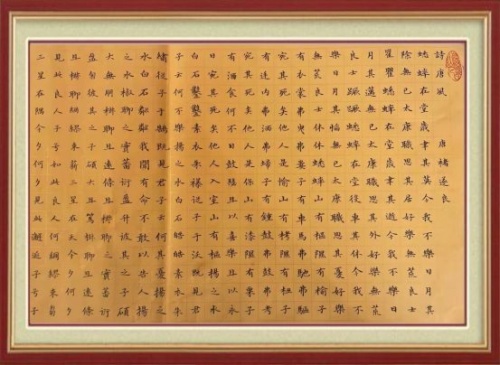 詩唐風 唐褚遂良
蟋蟀在堂歲聿其莫今我不樂日月其
除無已太康職思其居好樂無荒良士
瞿瞿蟋蟀在堂歲聿其逝今我不樂日
月其邁無已太康職思其外好樂無荒
良士蹶蹶蟋蟀在堂役車其休今我不
樂日月其慆無已太康職思其憂好樂
無荒良士休休蟋蟀山有樞隰有榆子
有衣裳弗曳弗婁子有車馬弗馳弗驅
宛其死矣他人是愉山有栲隰有杻子
有廷內弗洒弗埽子有鐘鼓弗鼓弗考
宛其死矣他人是保山有漆隰有栗子
有酒食何不日鼓瑟且以喜樂且以永
日宛其死矣他人入室山有樞揚之水
白石鑿鑿素衣朱襮從子于沃既見君
子云何不樂揚之水白石皓皓素衣朱
繡從子于鵠既見君子云何其憂揚之
水白石粼粼我聞有命不敢以告人揚
之水椒聊之實蕃衍盈升彼其之子碩
大無朋椒聊且遠條且椒聊之實蕃衍
盈匊彼其之子碩大且篤椒聊且遠條
且椒聊綢繆束薪三星在天今夕何夕
見此良人子兮如此良人何綢繆束芻
三星在隅今夕何夕見此邂逅子兮子